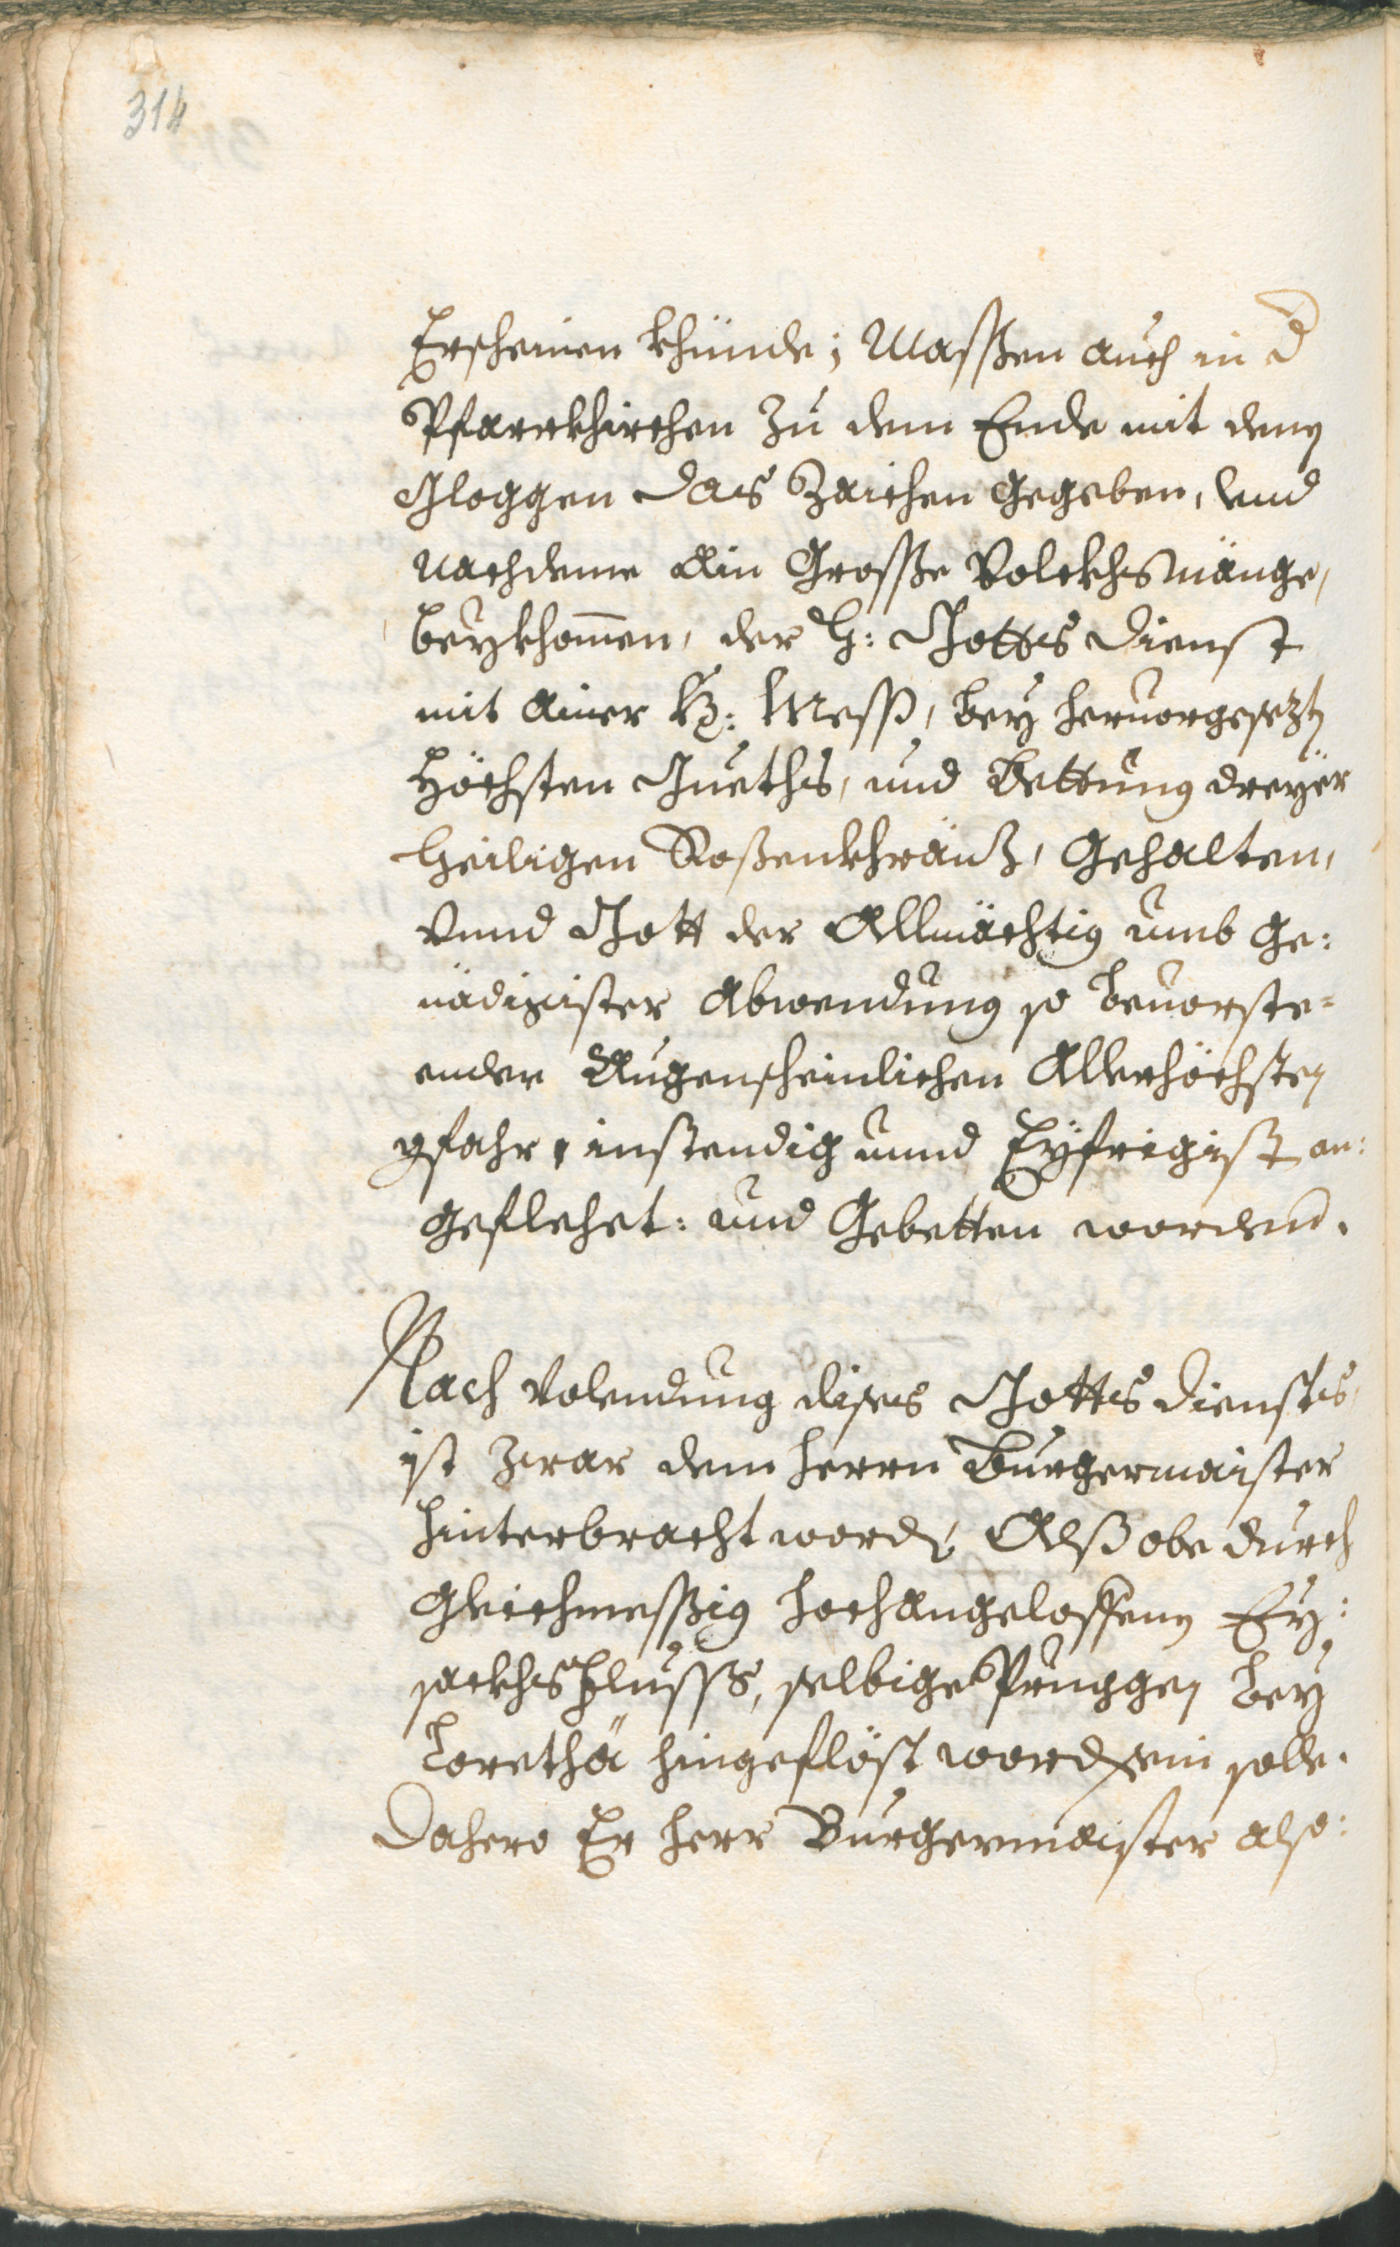 314
Erscheinen khünde; Massen auch in d
Pfarrkhirchen zu dem Ende mit denen
Gloggen das Zaichen gegeben, vnd
nachdeme ain Grosse Volckhs mänge,
beykhomen, der H: Gottes dienst
mit ainer H: Mess, bey heruorgesezten
Höchsten Gueths, und Bettung dreyer
heiligen Rosenkhränz, gehalten,
Vnnd Gott der Allmächtig umb ge:
nädigister Abwendung so beuorste=
ender Augenscheinlichen Allerhöchsten
gfahr, instendig unnd Eyfrigist an:
geflehet: und Gebetten worden.
Nach volendung dises Gottes diensts,
ist zwar dem herrn Burgermaister
hinterbracht worden, Alß obe durch
gleichmessig hochangeloffenen Ey:
sackhsfluss, selbige Pruggen bey
Loretha hingeflöst worden sein solle.
Dahero Er herr Burgermaister also: